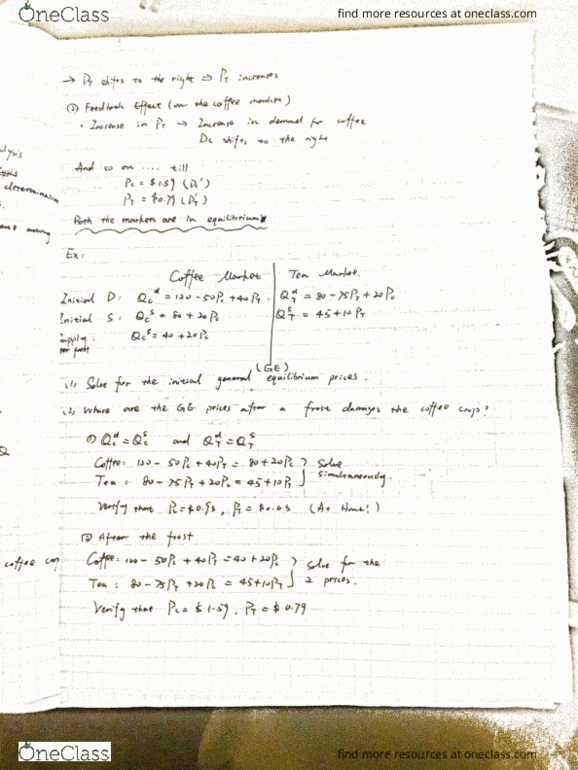 OneClass
find more resources at oneclass.com
→ DT shifts to the right ⇒ PT increases
(2) Feedback Effect (on the coffee market)
• Increase in PT → Increase in demand for coffee
Dc shifts to the right
And so on .... till
Pc = $1.59 (Dc')
PT = $0.79 (DT')
Both the markets are in equilibrium
Ex:
Coffee Market | Tea Market.
Initial D: Qc^d = 120 - 50Pc + 40PT | QT^d = 80 - 75PT + 20Pc
Initial S: Qc^s = 80 + 20Pc | QT^s = 45 + 10PT
Supply: Qc^s = 40 + 20Pc
frost
(GE)
(1) Solve for the initial general equilibrium prices.
(2) Where are the GE prices after a frost damages the coffee crop?
① Qc^d = Qc^s and QT^d = QT^s
Coffee: 120 - 50Pc + 40PT = 80 + 20Pc } Solve
Tea: 80 - 75PT + 20Pc = 45 + 10PT } simultaneously.
Verify that Pc = $0.93, PT = $0.63 (At Home!)
② After the frost
Coffee: 120 - 50Pc + 40PT = 40 + 20Pc } solve for the
Tea: 80 - 75PT + 20Pc = 45 + 10PT } 2 prices.
Verify that Pc = $1.59, PT = $0.79
determination
among
Q
coffee crop
OneClass
find more resources at oneclass.com